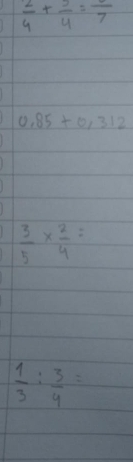 2/4 + 3/4 = /7
0,85 + 0,312
3/5 × 2/4 =
1/3 : 3/4 =